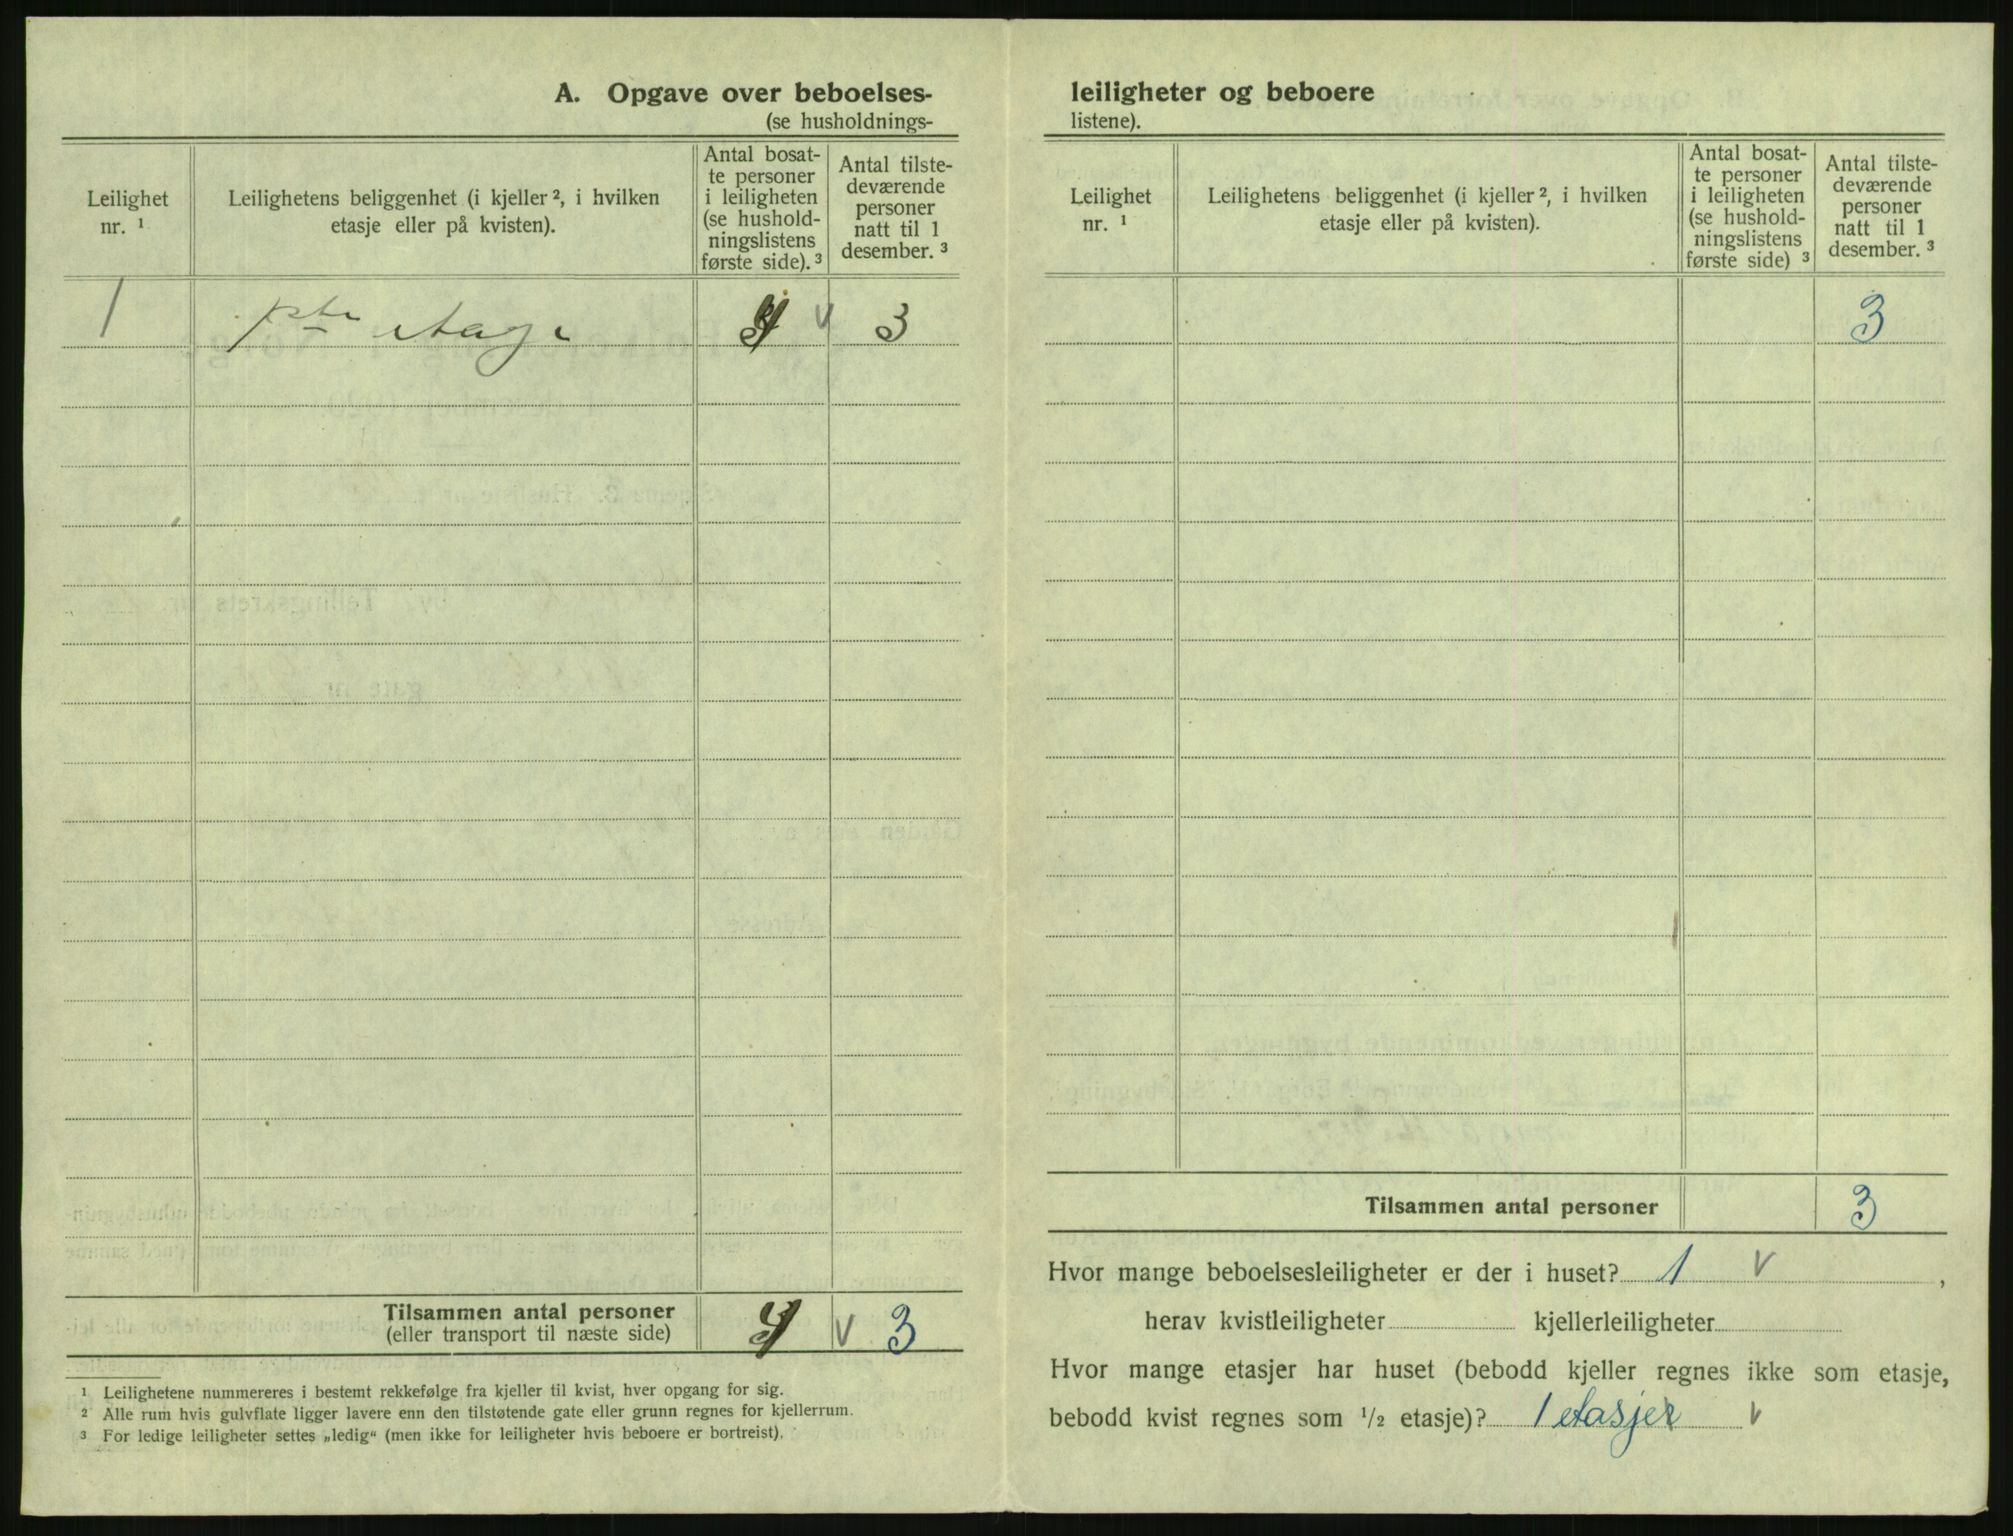 A. Opgave over beboelses-
(se husholdnings-
Leilighet
nr. ¹
Leilighetens beliggenhet (i kjeller ², i hvilken
etasje eller på kvisten).
Antal bosat-
te personer
i leiligheten
(se hushold-
ningslistens
første side). ³
Antal tilste-
deværende
personer
natt til 1
desember. ³
1 etage v 3
Tilsammen antal personer
(eller transport til næste side) v 3
¹ Leilighetene nummereres i bestemt rekkefølge fra kjeller til kvist, hver opgang for sig.
² Alle rum hvis gulvflate ligger lavere enn den tilstøtende gate eller grunn regnes for kjellerrum.
³ For ledige leiligheter settes „ledig“ (men ikke for leiligheter hvis beboere er bortreist).
leiligheter og beboere
listene).
Leilighet
nr. ¹
Leilighetens beliggenhet (i kjeller ², i hvilken
etasje eller på kvisten).
Antal bosat-
te personer
i leiligheten
(se hushold-
ningslistens
første side) ³
Antal tilste-
deværende
personer
natt til 1
desember. ³
3
Tilsammen antal personer 3
Hvor mange beboelsesleiligheter er der i huset? 1 v ,
herav kvistleiligheter kjellerleiligheter
Hvor mange etasjer har huset (bebodd kjeller regnes ikke som etasje,
bebodd kvist regnes som ¹/₂ etasje)? 1 etasjer v